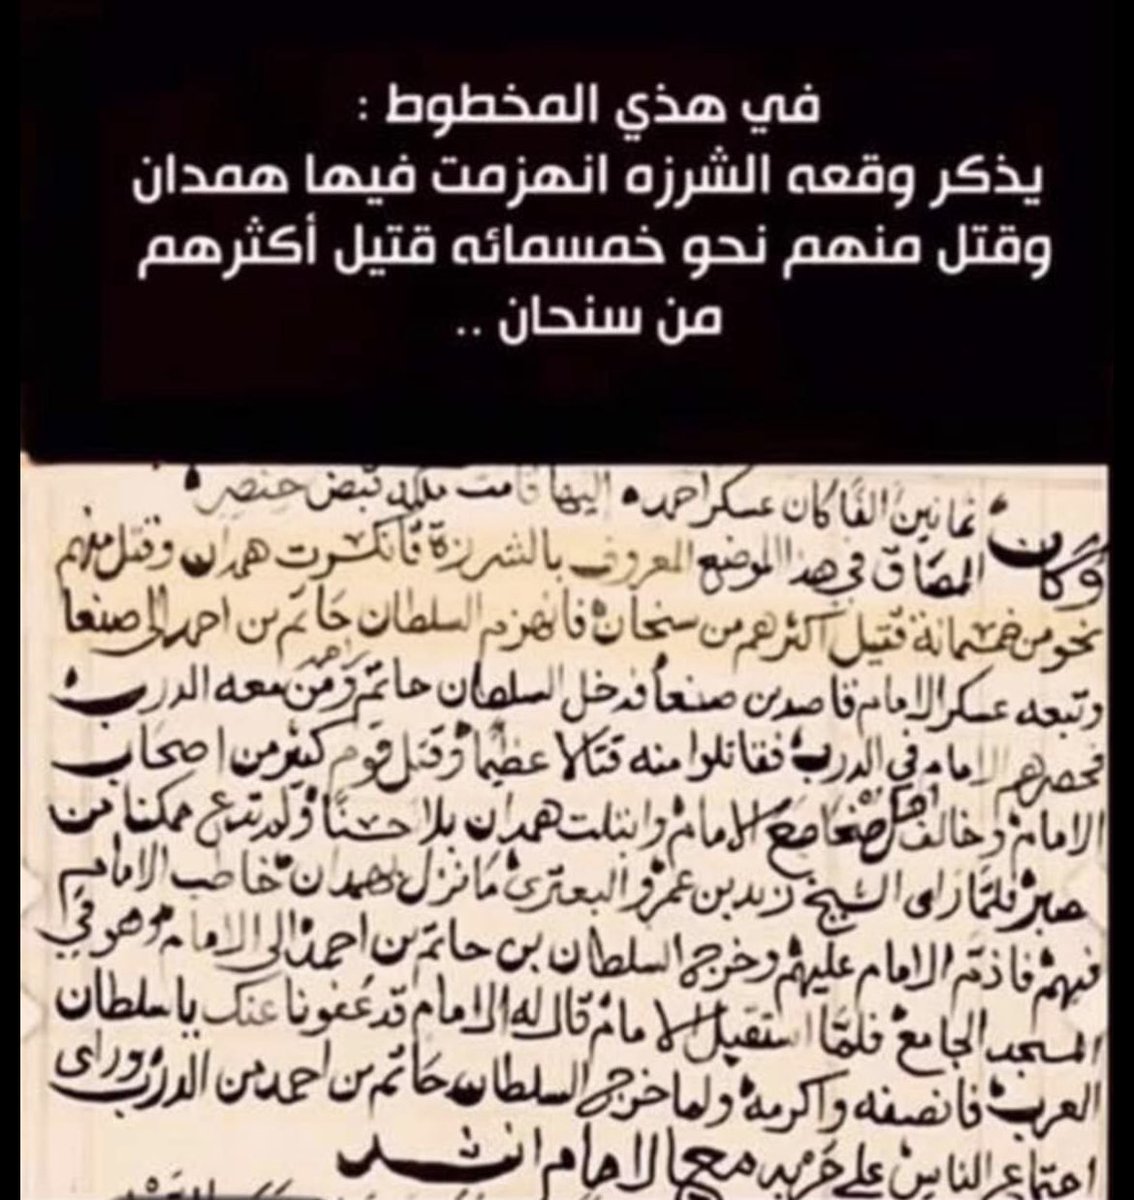 في هذي المخطوط :
يذكر وقعه الشرزه انهزمت فيها همدان
وقتل منهم نحو خمسمائه قتيل أكثرهم
من سنحان ..
ثمانين الفا كان عسكر احمد إليها قامت
وكان المصاق في هذا الموضع المعروف بالشرزة فانكسرت همدان وقتل منهم
نحو من خمسمائة قتيل اكثرهم من سنحان فانهزم السلطان حاتم بن احمد الى صنعا
وتبعه عسكر الامام قاصدين صنعا فدخل السلطان حاتم بن احمد ومن معه الدرب
فحصرهم الامام في الدرب فقاتلوا منه قتالا عظيما وقتل قوم كثير من اصحاب
الامام وخالف اهل صنعا مع الامام وابتلت همدان بلا حسنا ولم تدع ممكنا من
صبر فلما راى الشيخ زيد بن عمرو البعتري ما نزل بهمدان خاطب الامام
فيهم فاذم الامام عليهم وخرج السلطان بن حاتم بن احمد الى الامام وهو في
المسجد الجامع فلما استقبل الامام قال له الامام قد عفونا عنك يا سلطان
العرب فانصفه واكرمه ولما خرج السلطان حاتم بن احمد من الدرب وراى
اجتماع الناس على حربه مع الامام انشد